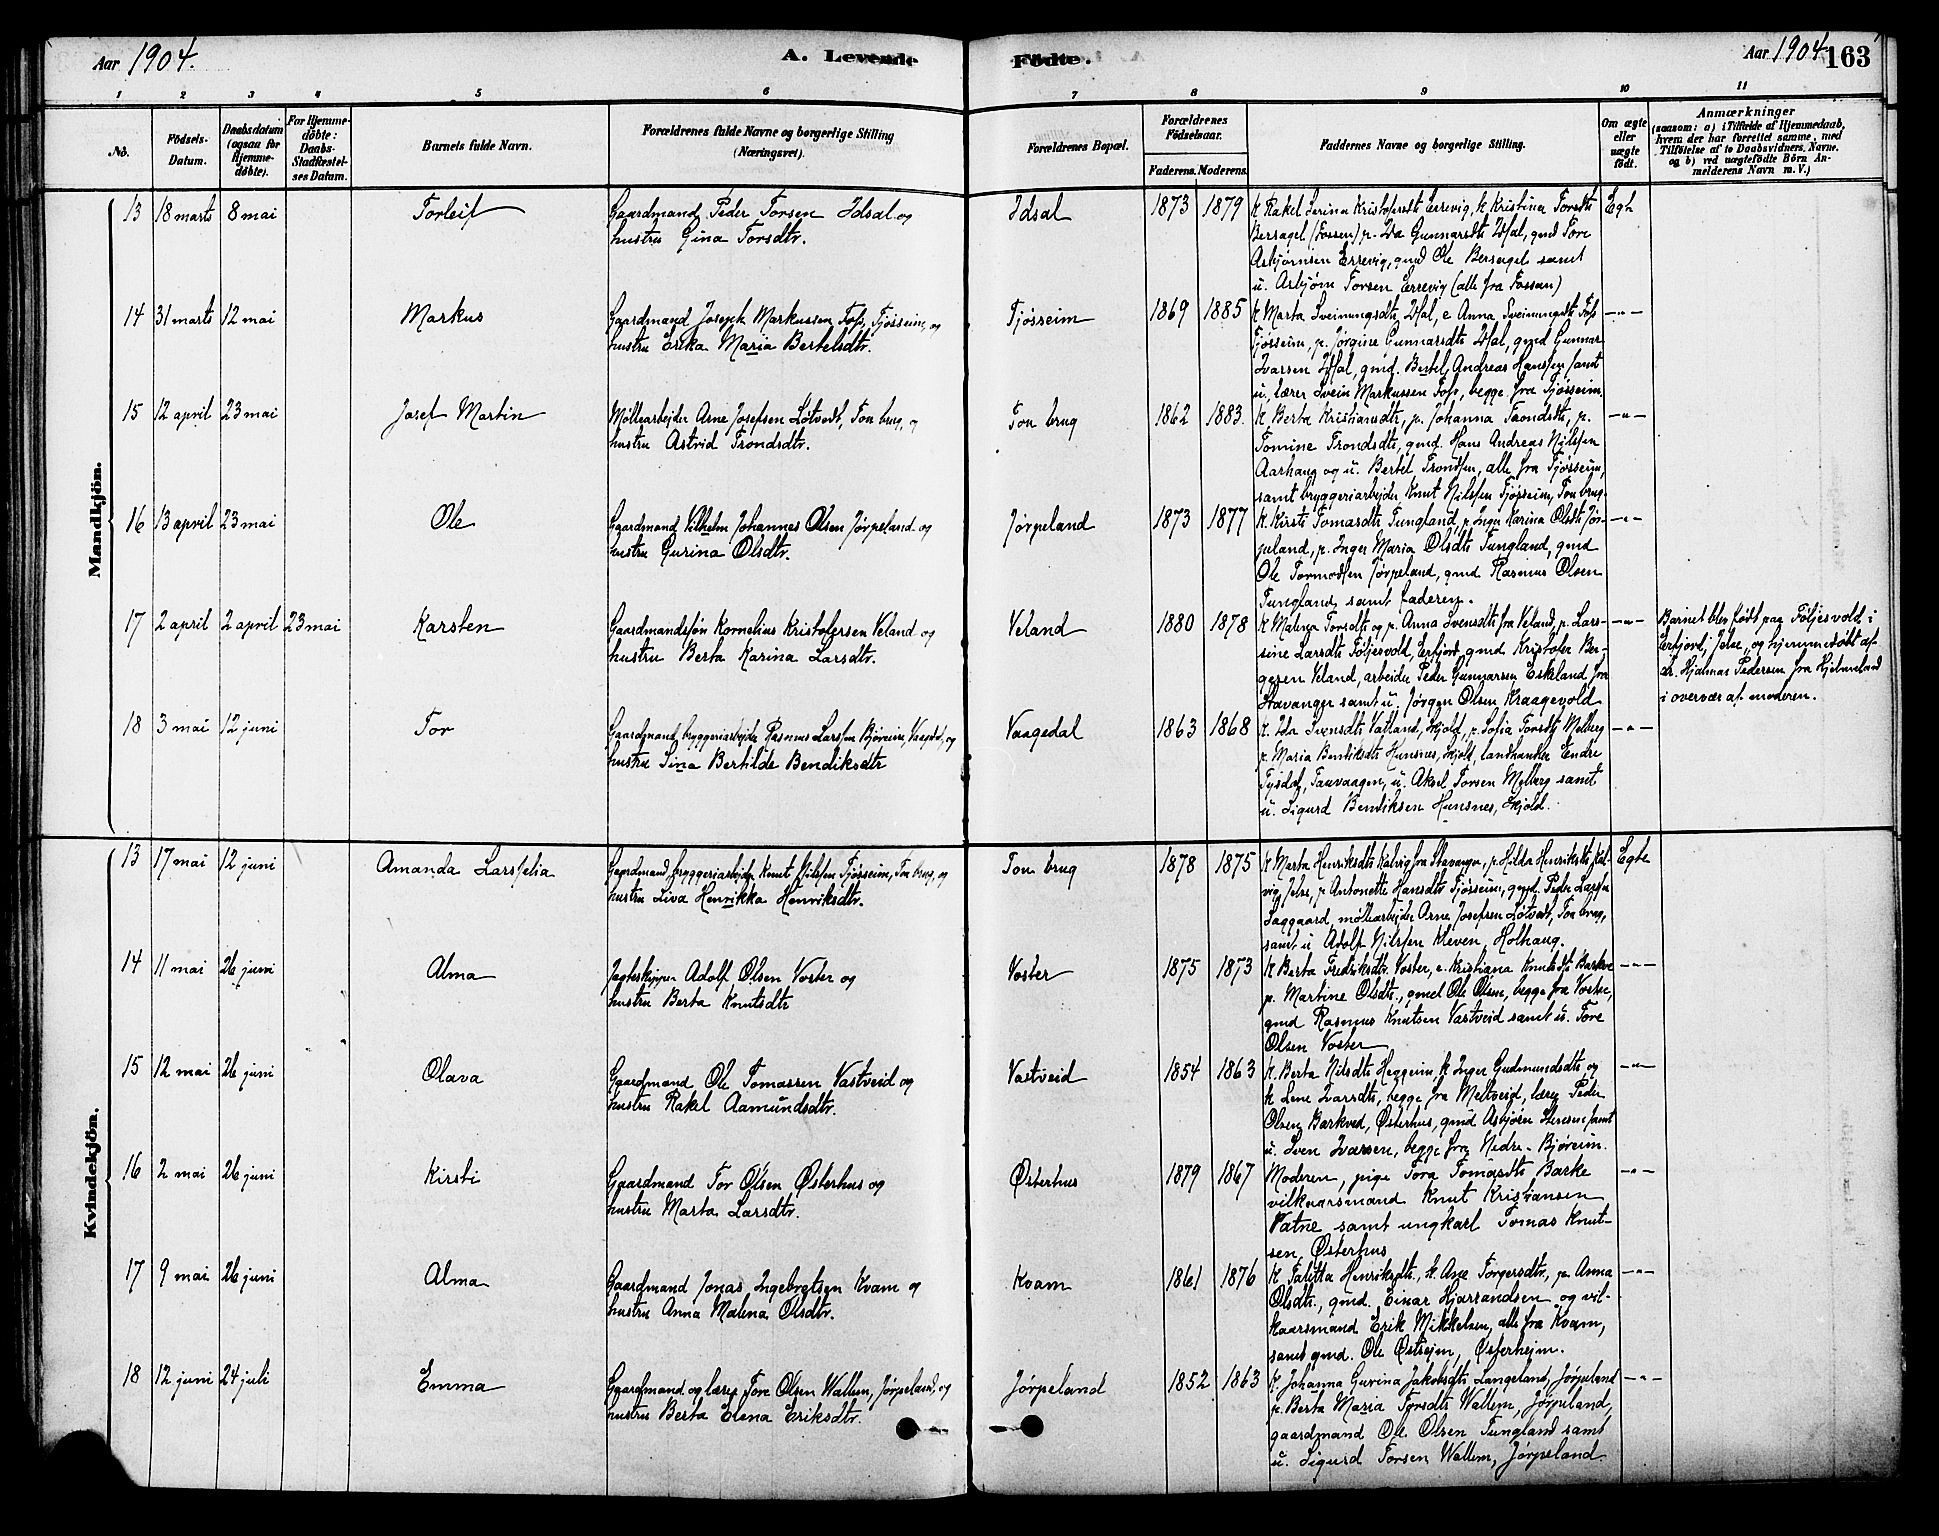 Aar 1904.
A. Levende
Födte.
Aar 1904
163
1 2 3 4 5 6 7 8 9 10 11
No.
Födsels-Datum.
Daabsdatum (ogsaa for Hjemmedöbte).
For Hjemmedöbte: Daabs-Stadfæstelses Datum.
Barnets fulde Navn.
Forældrenes fulde Navne og borgerlige Stilling (Næringsvei).
Forældrenes Bopæl.
Forældrenes Födselsaar.
Faderens. Moderens.
Faddernes Navne og borgerlige Stilling.
Om ægte eller uægte födt.
Anmærkninger
(saasom: a) i Tilfælde af Hjemmedaab, hvem der har forrettet samme, med Tilföielse af to Daabsvidners Navne, og b) ved uægtefödte Börn Anmelderens Navn m. V.)
Mandkjön.
13 18 marts 8 mai Torleif
Gaardmand Peder Torsen Idsal og
hustru Gina Torsdtr.
Idsal 1873 1879
k Rakel Serina Kristofersdtr Errevig, k Kristina Torsdtr
Bersagel (Fossen) p. Ida Gunnarsdtr Idsal, gmd Tore
Asbjørnsen Errevig, gmd Ole Bersagel samt
u. Asbjørn Torsen Errevig (alle fra Fossan)
Egte
14 31 marts 12 mai Markus
Gaardmand Joseph Markussen Foss, Tjøsseim, og
hustru Erika Maria Bertelsdtr.
Tjøsseim 1869 1885
k Marta Sveinungsdtr Idsal, e Anna Sveinungsdtr Foss
Tjøsseim, p. Jørgine Gunnarsdtr Idsal, gmd Gunnar
Ivarsen Idsal, gmd. Bertel Andreas Hanssen samt
u. lærer Svein Markussen Foss, begge fra Tjøsseim.
-"-
15 12 april 23 mai Josef Martin
Møllearbejder Arne Josefsen Løtvedt, Tou brug, og
hustru Astrid Trondsdtr.
Tou brug 1862 1883.
k. Berta Kristiansdtr, p. Johanna Trondsdtr, p.
Tomine Trondsdtr, gmd. Hans Andreas Nilssen
Aarhaug og u. Bertel Trondsen, alle fra Tjøsseim,
samt bryggeriarbejder Knut Nilssen Tjøsseim, Tou brug.
-"-
16 13 april 23 mai Ole
Gaardmand Vilhelm Johannes Olsen Jørpeland og
hustru Gurina Olsdtr.
Jørpeland 1873 1877
k. Kirsti Tomasdtr Tungland, p. Inger Karina Olsdtr Jør-
peland, p. Inger Maria Olsdtr Tungland, gmd
Ole Tormodsen Jørpeland, gmd Rasmus Olsen
Tungland samt faderen.
-"-
17 2 april 2 april 23 mai Karsten
Gaardmandssøn Kornelius Kristofersen Veland og
hustru Berta Karina Larsdtr.
Veland 1880 1878
k Malena Torsdtr og p. Anna Svensdtr fra Veland, p. Lar-
sine Larsdtr Føljesvold, Erfjord, gmd Kristofer Ber-
gesen Veland, arbeider Peder Gunnarsen Eskeland fra
Stavanger samt u. Jørgen Olsen Kraagevold
-"-
Barnet blev født paa Føljesvold i
Erfjord, Jelse, og hjemmedøbt af
dr. Hjalmar Pedersen fra Hjelmeland
i overvær af moderen.
18 3 mai 12 juni Tor
Gaardmand, bryggeriarbejder Rasmus Larssen Bjøreim, Vaagedal, og
hustru Sina Bertilde Bendiksdtr
Vaagedal 1863 1868
k. Ida Svensdtr Vatland, Skjold, p. Sofia Torsdtr Melberg
p. Maria Bendiksdtr Hunsnes, Skjold, landhandler Endre
Tysdal, Tauvaagen, u. Aksel Torsen Melberg samt
u. Sigurd Bendiksen Hunsnes, Skjold.
-"-
Kvindekjön.
13 17 mai 12 juni Amanda Larsselia
Gaardmand, bryggeriarbejder Knut Nilssen Tjøsseim, Tou brug, og
hustru Liva Henrikka Henriksdtr.
Tou brug 1878 1875
k Marta Henriksdtr Kalvig fra Stavanger, p. Hilda Henriksdtr Kal-
vig, Jelse, p Antonette Hansdtr Tjøsseim, gmd. Peder Larssen
Saggaard, møllearbejder Arne Josefsen Løtvedt, Tou brug,
samt u Adolf Nilssen Kleven, Holhaug.
Egte
14 11 mai 26 juni Alma
Jagteskipper Adolf Olsen Voster og
hustru Berta Knutsdtr
Voster 1875 1873
k Berta Fredriksdtr. Voster, e. Kristiana Knutsdtr Barkve
p. Martine Olsdtr., gmd Ole Olsen, begge fra Voster,
gmd Rasmus Knutsen Vastveid samt u. Tore
Olsen Voster
-"-
15 12 mai 26 juni Olava
Gaardmand Ole Tomassen Vastveid og
hustru Rakel Aamundsdtr.
Vastveid 1854 1863
k. Berta Nilsdtr Heggeim, k Inger Gudmundsdtr og
k Lene Ivarsdtr, begge fra Meltveid, lærer Peder
Olsen Barkved, Østerhus, gmd Asbjørn Steresen samt
u. Sven Ivarsen, begge fra Nedre-Bjøreim.
-"-
16 2 mai 26 juni Kirsti
Gaardmand Tor Olsen Østerhus og
hustru Marta Larsdtr.
Østerhus 1879 1867
Moderen, pige Tora Tomasdtr Barke
vilkaarsmand Knut Kristiansen
Vatne samt ungkarl Tomas Knut-
sen, Østerhus
-"-
17 9 mai 26 juni Alma
Gaardmand Jonas Ingebretsen Kvam og
hustru Anna Malena Olsdtr.
Kvam 1861 1876
k Talitta Henriksdtr., k. Ane Torgersdtr., p. Anna
Olsdtr., gmd. Einar Hjarrandsen og vil-
kaarsmand Erik Mikkelsen, alle fra Kvam,
samt gmd. Ole Østreim, Østerheim.
-"-
18 12 juni 24 juli Emma
Gaardmand og lærer Tore Olsen Wallem, Jørpeland, og
hustru Berta Elena Eriksdtr.
Jørpeland 1852 1863
k. Johanna Gurina Jakobsdtr Langeland, Jørpeland
p. Berta Maria Torsdtr Wallem, Jørpeland,
gaardmand Ole Olsen Tungland samt
u. Sigurd Torsen Wallem, Jørpeland
-"-